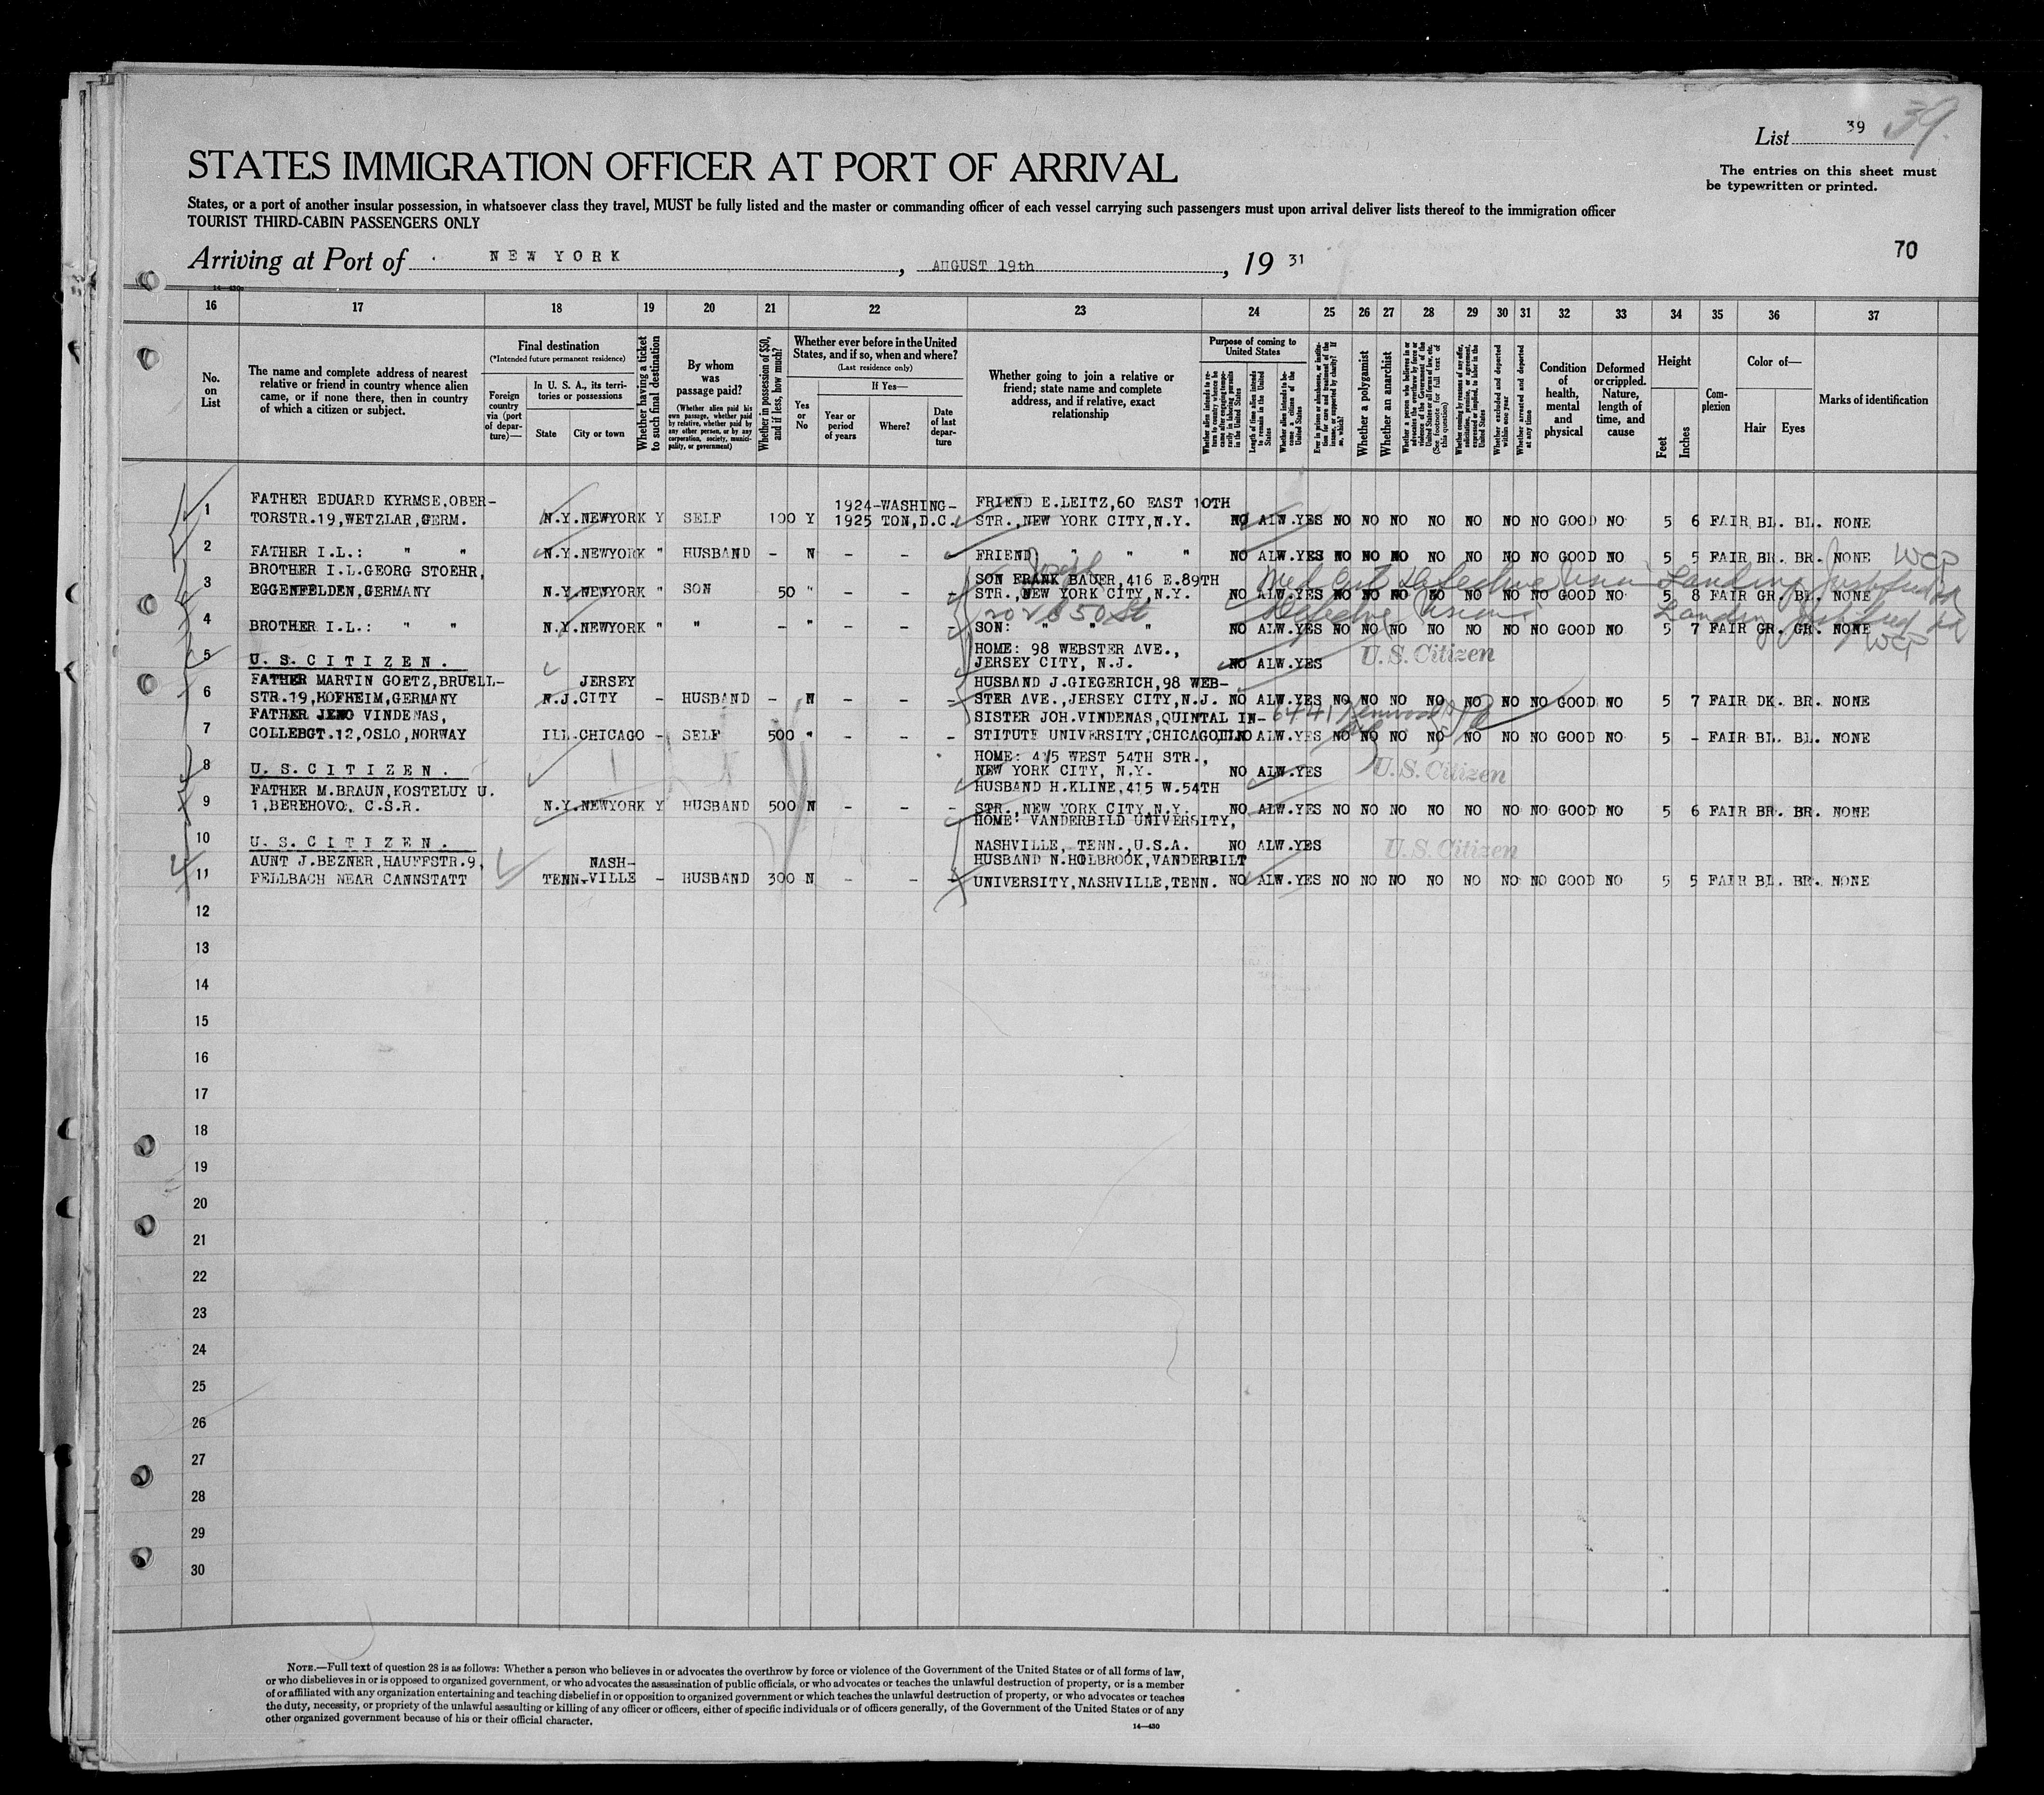 List 39 39.
The entries on this sheet must
be typewritten or printed.
STATES IMMIGRATION OFFICER AT PORT OF ARRIVAL
States, or a port of another insular possession, in whatsoever class they travel, MUST be fully listed and the master or commanding officer of each vessel carrying such passengers must upon arrival deliver lists thereof to the immigration officer
TOURIST THIRD-CABIN PASSENGERS ONLY
70
Arriving at Port of NEW YORK, AUGUST 19th, 19 31
14—430
16 17 18 19 20 21 22 23 24 25 26 27 28 29 30 31 32 33 34 35 36 37
No. on List
The name and complete address of nearest relative or friend in country whence alien came, or if none there, then in country of which a citizen or subject.
Final destination
(*Intended future permanent residence)
Foreign country via (port of departure)—
In U. S. A., its territories or possessions
State
City or town
Whether having a ticket to such final destination
By whom was passage paid?
(Whether alien paid his own passage, whether paid by relative, whether paid by any other person, or by any corporation, society, municipality, or government)
Whether in possession of $50, and if less, how much?
Whether ever before in the United States, and if so, when and where?
(Last residence only)
Yes or No
If Yes—
Year or period of years
Where?
Date of last departure
Whether going to join a relative or friend; state name and complete address, and if relative, exact relationship
Purpose of coming to United States
Whether alien intends to return to country whence he came after engaging temporarily in laboring pursuits in the United States
Length of time alien intends to remain in the United States
Whether alien intends to become a citizen of the United States
Ever in prison or almshouse, or institution for care and treatment of the insane, or supported by charity? If so, which?
Whether a polygamist
Whether an anarchist
(See footnote for full text of this question)
Whether excluded and deported within one year
Whether arrested and deported at any time
Condition of health, mental and physical
Deformed or crippled. Nature, length of time, and cause
Height
Feet
Inches
Complexion
Color of—
Hair
Eyes
Marks of identification
FATHER EDUARD KYRMSE,OBER- 1924-WASHING- FRIEND E.LEITZ,60 EAST 10TH
1 TORSTR.19,WETZLAR,GERM. N.Y.NEWYORK Y SELF 100 Y 1925 TON,D.C. STR.,NEW YORK CITY,N.Y. NO ALW.YES NO NO NO NO NO NO NO GOOD NO 5 6 FAIR BL. BL. NONE
2 FATHER I.L.: " " N.Y.NEWYORK " HUSBAND - N - - FRIEND " " " NO ALW.YES NO NO NO NO NO NO NO GOOD NO 5 5 FAIR BR. BR. NONE WCP
BROTHER I.L.GEORG STOEHR, Joseph
SON FRANK BAUER,416 E.89TH Med Cert Defective Vision Landing Justified
3 EGGENFELDEN,GERMANY N.Y.NEWYORK " SON 50 " - - - STR.,NEW YORK CITY,N.Y. NO ALW.YES NO NO NO NO NO NO NO GOOD NO 5 8 FAIR GR. BL. NONE
202 E 50 St Defective Vision Landing Justified
4 BROTHER I.L.: " " N.Y.NEWYORK " " - " - - - SON: " " " NO ALW.YES NO NO NO NO NO NO NO GOOD NO 5 7 FAIR GR. GR. NONE
WCP
HOME: 98 WEBSTER AVE.,
5 U. S. C I T I Z E N . JERSEY CITY, N.J. NO ALW.YES U.S. Citizen
FATHER MARTIN GOETZ,BRUELL- JERSEY HUSBAND J.GIEGERICH,98 WEB-
6 STR.19,HOFHEIM,GERMANY N.J. CITY - HUSBAND - N - - - STER AVE.,JERSEY CITY,N.J. NO ALW.YES NO NO NO NO NO NO NO GOOD NO 5 7 FAIR DK. BR. NONE
FATHER JENO VINDENAS, SISTER JOH.VINDENAS,QUINTAL IN- 6441 Kenwood
7 COLLEBGT.12,OSLO,NORWAY ILL.CHICAGO - SELF 500 " - - - STITUTE UNIVERSITY,CHICAGO,ILL NO ALW.YES NO NO NO NO NO NO NO GOOD NO 5 - FAIR BL. BL. NONE
HOME: 415 WEST 54TH STR.,
8 U. S. C I T I Z E N . NEW YORK CITY, N.Y. NO ALW.YES U.S. Citizen
FATHER M.BRAUN,KOSTELUY U. HUSBAND H.KLINE,415 W.54TH
9 1,BEREHOVO, C.S.R. N.Y.NEWYORK Y HUSBAND 500 N - - - STR.,NEW YORK CITY,N.Y. NO ALW.YES NO NO NO NO NO NO NO GOOD NO 5 6 FAIR BR. BR. NONE
HOME: VANDERBILD UNIVERSITY,
10 U. S. C I T I Z E N . NASHVILLE, TENN.,U.S.A. NO ALW.YES U.S. Citizen
AUNT J.BEZNER,HAUFFSTR.9, NASH- HUSBAND N.HOLBROOK,VANDERBILT
11 FELLBACH NEAR CANNSTATT TENN.VILLE - HUSBAND 300 N - - - UNIVERSITY,NASHVILLE,TENN. NO ALW.YES NO NO NO NO NO NO NO GOOD NO 5 5 FAIR BL. BR. NONE
12
13
14
15
16
17
18
19
20
21
22
23
24
25
26
27
28
29
30
NOTE.—Full text of question 28 is as follows: Whether a person who believes in or advocates the overthrow by force or violence of the Government of the United States or of all forms of law,
or who disbelieves in or is opposed to organized government, or who advocates the assassination of public officials, or who advocates or teaches the unlawful destruction of property, or is a member
of or affiliated with any organization entertaining and teaching disbelief in or opposition to organized government or which teaches the unlawful destruction of property, or who advocates or teaches
the duty, necessity, or propriety of the unlawful assaulting or killing of any officer or officers, either of specific individuals or of officers generally, of the Government of the United States or of any
other organized government because of his or their official character.
14—430